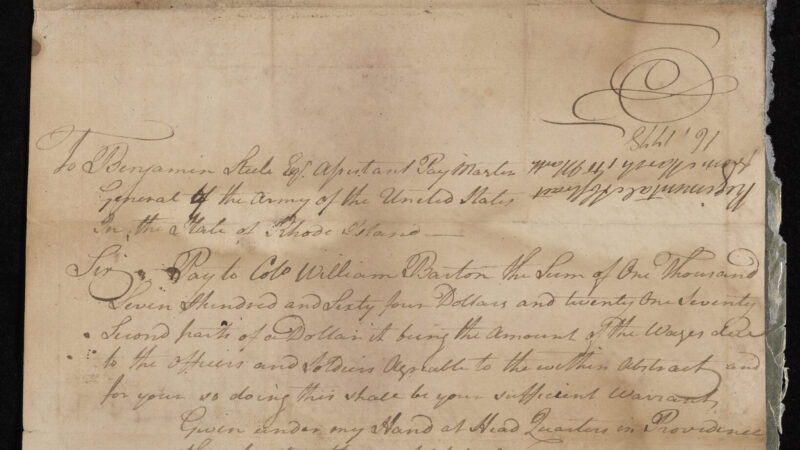 To Benjamin Steele Esqr. Assistant Pay Master
General of the Army of the United States
In the State of Rhode Island —
Sir Pay to Colo William Barton the Sum of One Thousand
Seven Hundred and Sixty four Dollars and twenty One Seventy
Second parts of a Dollar it being the Amount of the Wages due
to the officers and Soldiers Agreable to the within Abstract and
for your so doing this shall be your sufficient Warrant,
Given under my Hand at Head Quarters in Providence
Regimental Abstract
from March
16. 1778